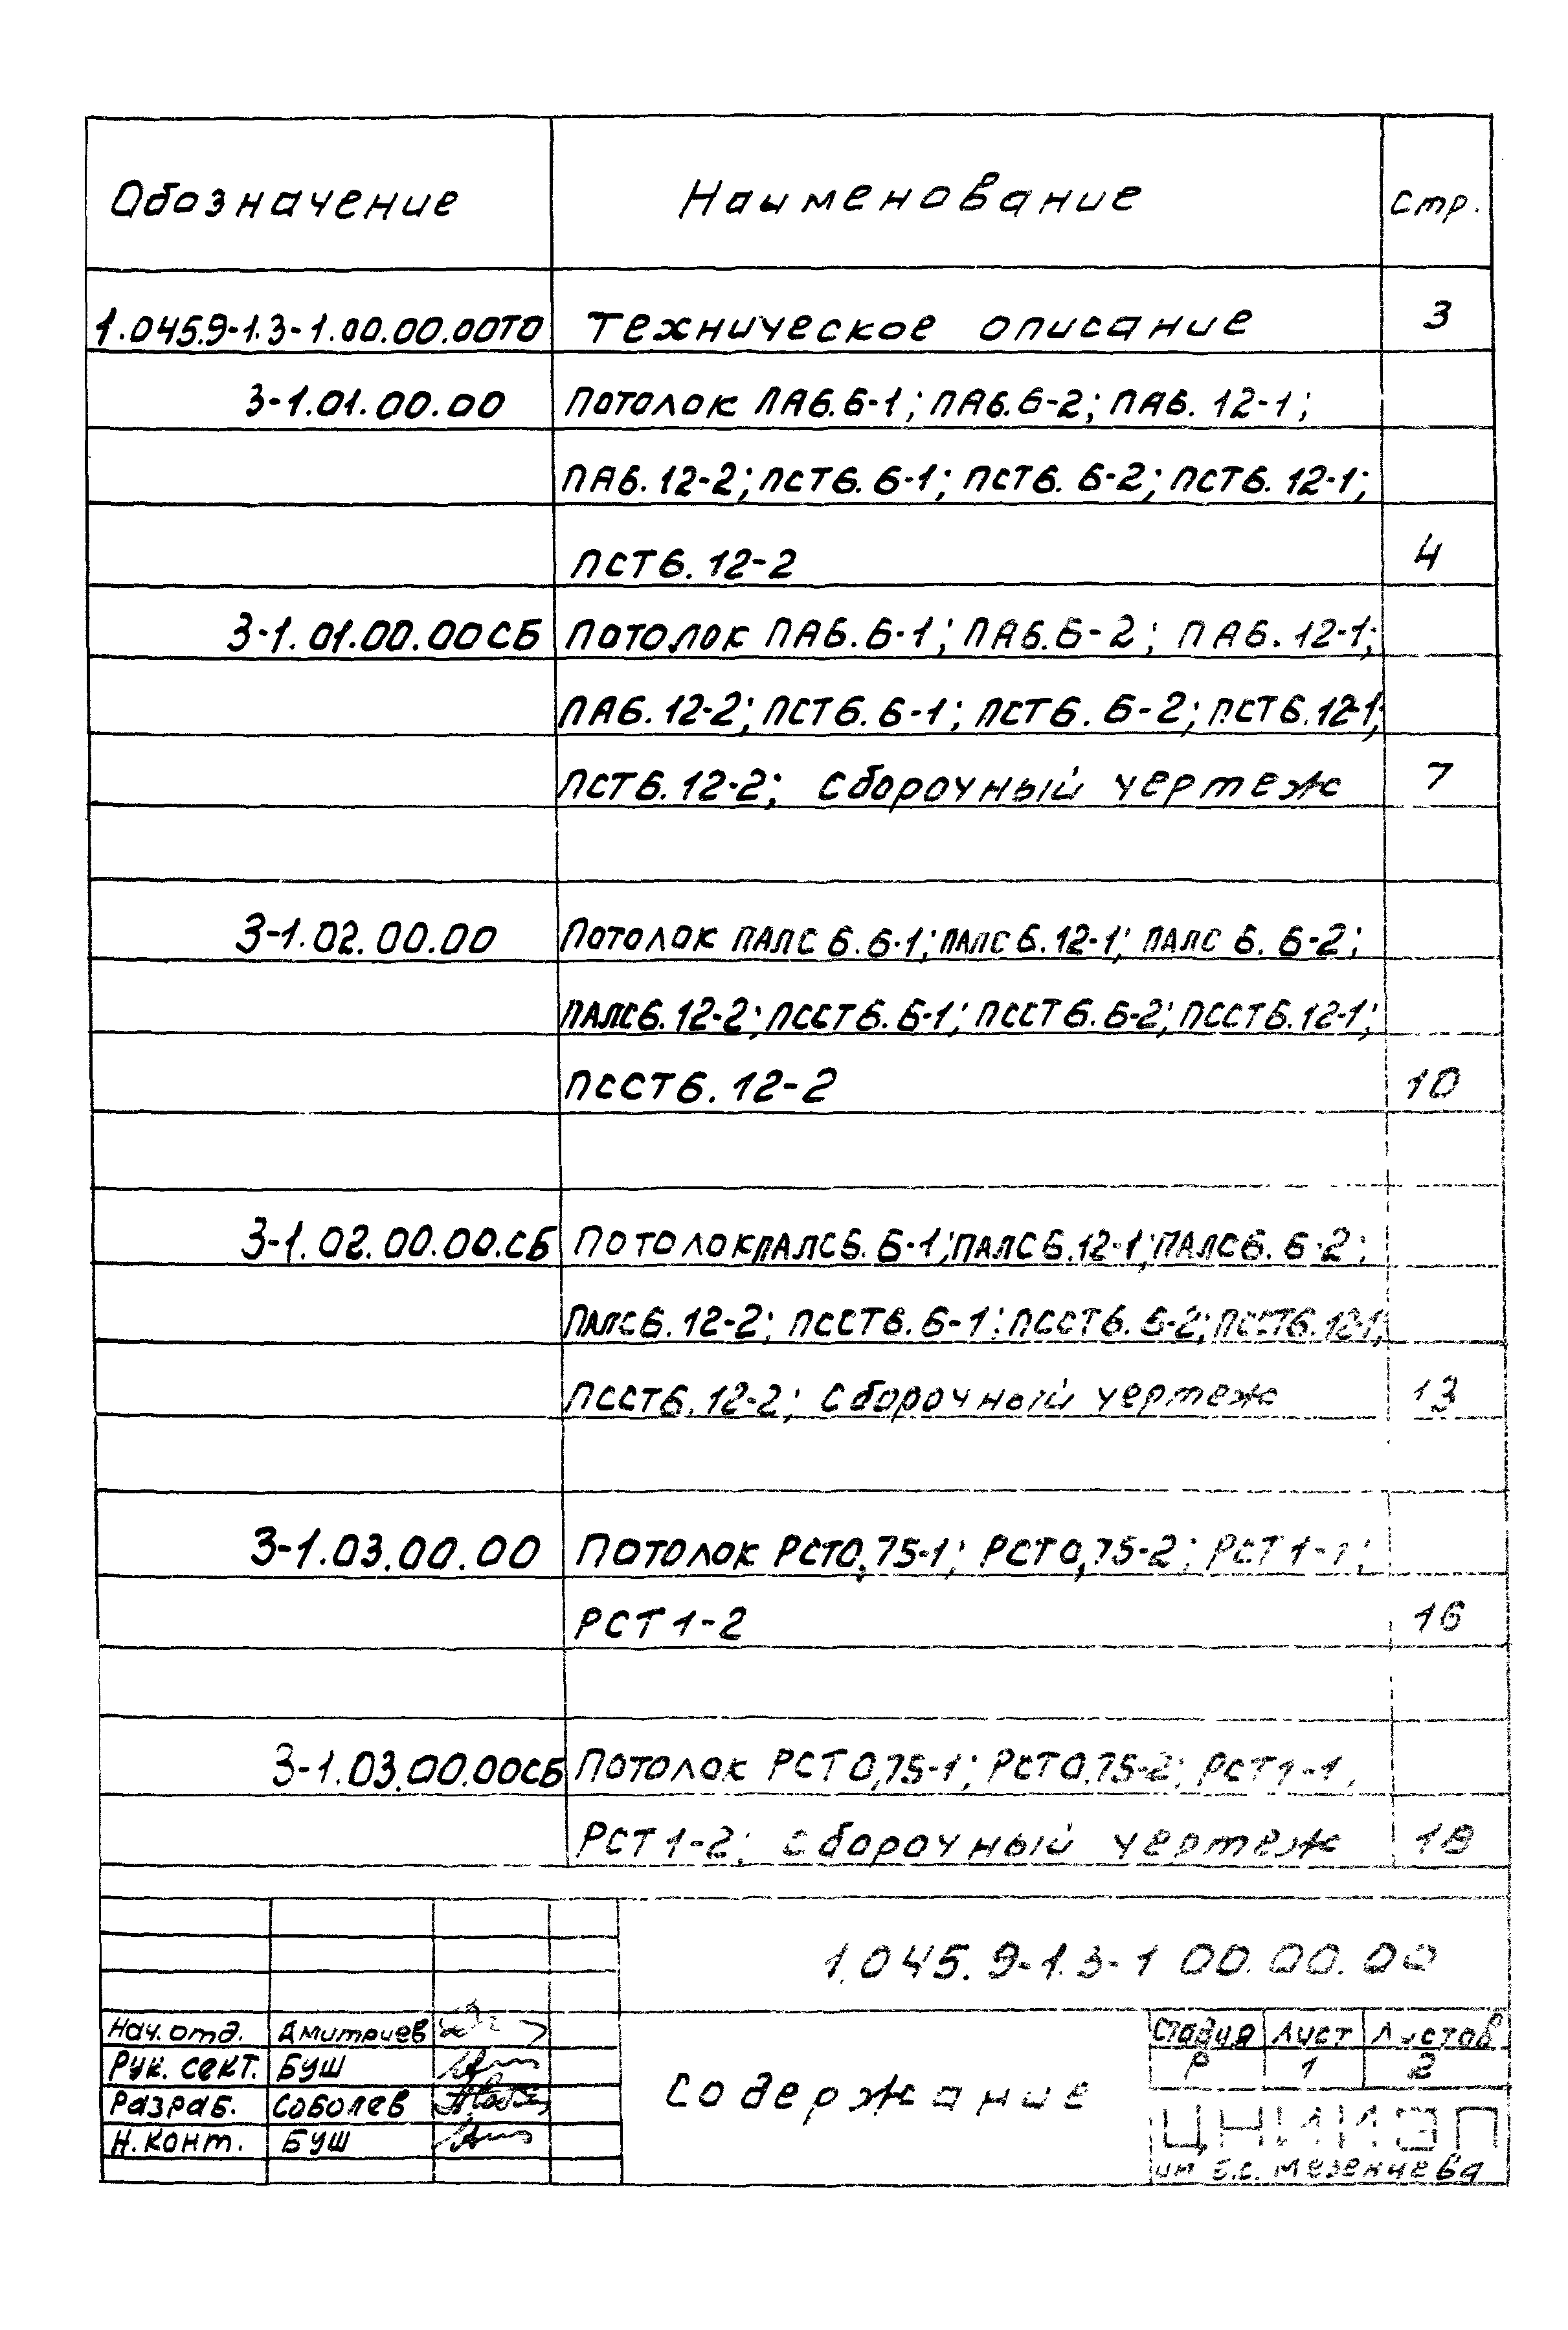 Обозначение Наименование стр.
1.045.9-1.3-1.00.00.00ТО Техническое описание 3
3-1.01.00.00 Потолок ПА6.6-1; ПА6.6-2; ПА6.12-1;
ПА6.12-2; ПСТ6.6-1; ПСТ6.6-2; ПСТ6.12-1;
ПСТ6.12-2 4
3-1.01.00.00СБ Потолок ПА6.6-1; ПА6.6-2; ПА6.12-1;
ПА6.12-2; ПСТ6.6-1; ПСТ6.6-2; ПСТ6.12-1;
ПСТ6.12-2; Сборочный чертеж 7
3-1.02.00.00 Потолок ПАЛС6.6-1; ПАЛС6.12-1; ПАЛС6.6-2;
ПАЛС6.12-2; ПССТ6.6-1; ПССТ6.6-2; ПССТ6.12-1;
ПССТ6.12-2 10
3-1.02.00.00.СБ Потолок ПАЛС6.6-1; ПАЛС6.12-1; ПАЛС6.6-2;
ПАЛС6.12-2; ПССТ6.6-1; ПССТ6.6-2; ПССТ6.12-1;
ПССТ6.12-2; Сборочный чертеж 13
3-1.03.00.00 Потолок РСТ0,75-1; РСТ0,75-2; РСТ1-1;
РСТ1-2 16
3-1.03.00.00СБ Потолок РСТ0,75-1; РСТ0,75-2; РСТ1-1,
РСТ1-2; Сборочный чертеж 18
1.045.9-1.3-1 00.00.00
Нач. отд. Дмитриев
Рук. сект. Буш
Разраб. Соболев
Н. конт. Буш
Содержание
Стадия Лист Листов
Р 1 2
ЦНИИЭП
им Б.С. Мезенцева